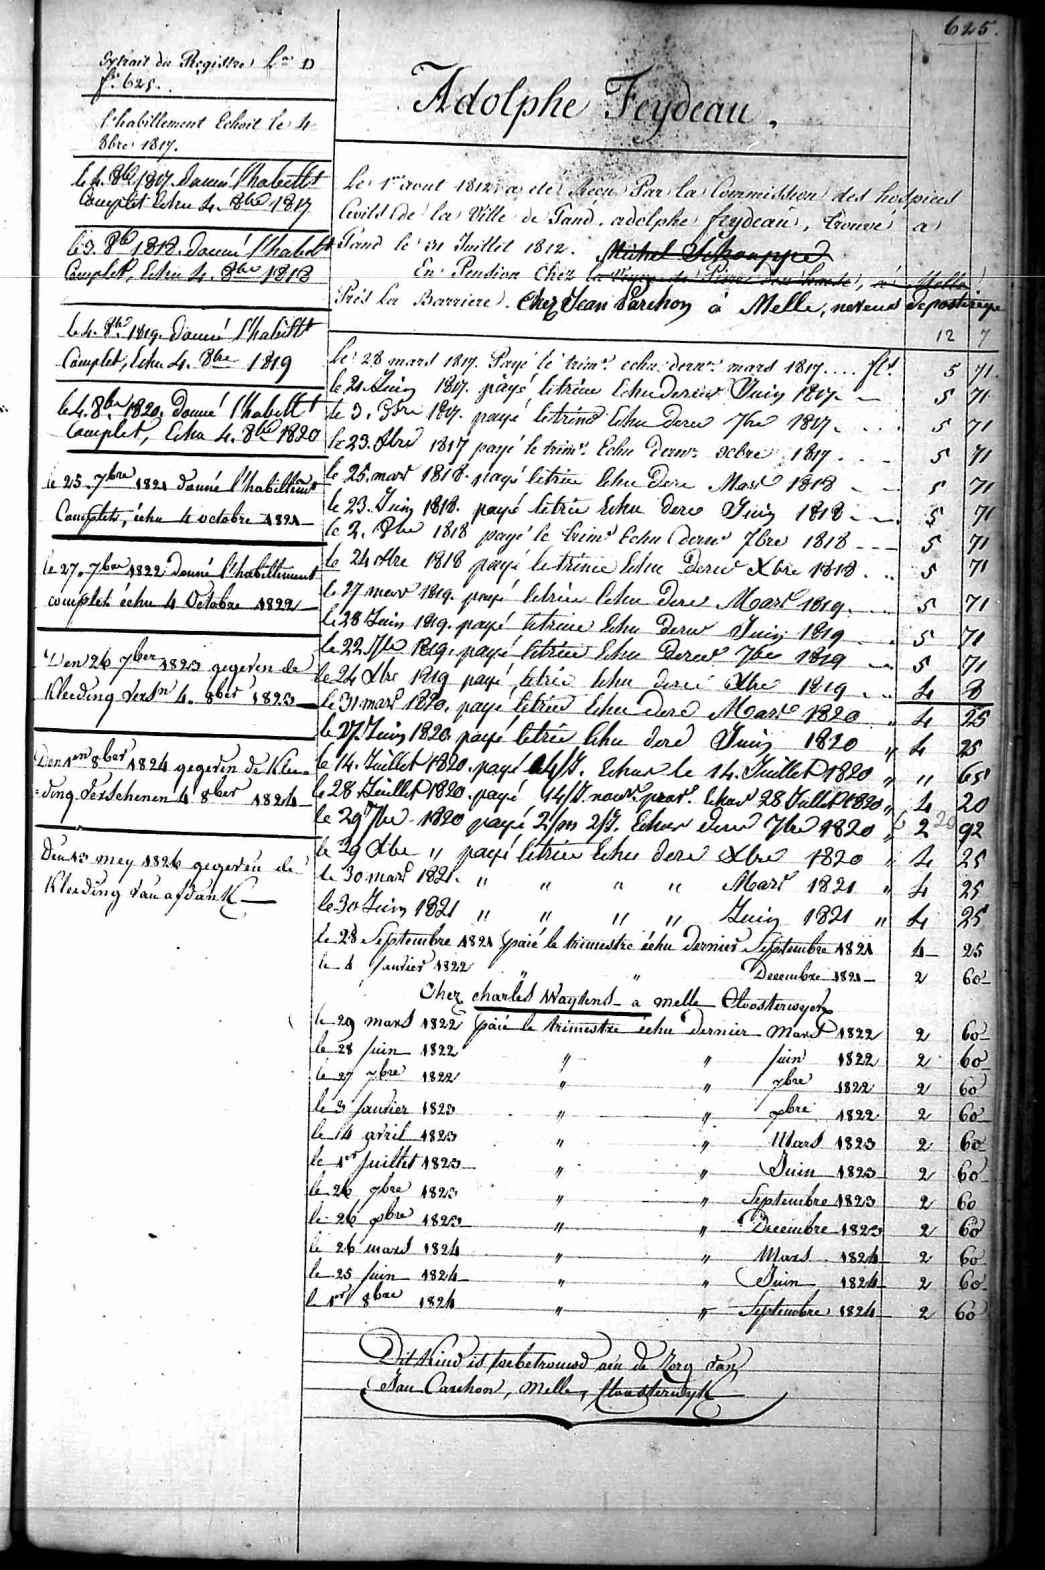 625.
Extrait du Registre Lra D
fo 625.
l'habillement Echoit le 4
8bre 1817.
le 4. 8bre 1817. donné l'habillt
Complet Echu 4. 8bre 1817
le 3. 8bre 1818. donné l'habillt
Complet, Echu 4. 8bre 1818
le 4. 8bre 1819. donné l'habillt
Complet, Echu 4. 8bre 1819
le 4. 8bre 1820. donné l'habillt
Complet, Echu 4. 8bre 1820
le 25. 7bre 1821 donné l'habillemt
Complet, échu 4 octobre 1821
le 27. 7bre 1822 donné l'habillement
complet échu 4 Octobre 1822
Den 26 7ber 1823 gegeven de
Kleeding versn 4. 8ber 1823
Den 1en 8ber 1824 gegeven de Klee=
=ding verschenen 4 8ber 1824
Den 13 mey 1826 gegeven de
Kleeding van afdank
Adolphe Feydeau.
Le 1er aout 1812 a été Reçu Par la Commission des hospices
Civils de la Ville de Gand. adolphe feydeau, trouvé a
Gand le 31 Juillet 1812. Michel
En Pension Chez la Veuve de Melle
Près la Barriere. Chez Jean Parchon à Melle, neveu
12 7
le 28 mars 1817. Payé le trimr. echu dernr. mars 1817 .... fls. 5 71
le 21. Juin 1817. payé letrim Echu dernier Juin 1817 5 71
le 3. 8bre 1817. payé letrime Echu dere 7bre 1817 5 71
le 23. Xbre 1817 payé le trimr. Echu dernr. xcbre 1817 5 71
le 25. mars 1818. payé letrie Echu dere Mars 1818 5 71
le 23. Juin 1818. payé letrie Echu dere Juin 1818 5 71
le 2. 8bre 1818 payé le trimr Echu derner 7bre 1818 5 71
le 24 Xbre 1818 payé letrime Echu Dernr Xbre 1818 5 71
le 27 mars 1819. payé letrie Echu dere Mars 1819 5 71
le 28 Juin 1819. payé letrime Echu dernr Juin 1819 5 71
le 22 7bre 1819. payé letrie Echu Dernr 7bre 1819 5 71
le 24 Xbre 1819 payé, letrie Echu derie Xbre 1819 4 8
le 31 mars 1820, payé letrie Echu dere Mars 1820 4 25
le 27. Juin 1820 payé letrie Echu dere Juin 1820 " 4 25
le 14. Juillet 1820. payé 14/J. Echus le 14. Juillet 1820 " " 65
le 28 Juillet 1820. payé 14/J. nour. prov. Echus 28 Juillet 1820 " 4 20
le 29 7bre 1820 payé 2/m 2/J. Echus dern 7bre 1820 " 2 92
le 29 Xbre " payé letrie Echu dere Xbre 1820 " 4 25
le 30 mars 1821. " " " " Mars 1821 " 4 25
le 30 Juin 1821 " " " " Juin 1821 " 4 25
le 28 Septembre 1821 payé le trimestre échu dernier Septembre 1821 4 25
le 4 Janvier 1822 " Decembre 1821 2 60
Chez charles Waytens a melle Cloosterwyck
le 29 mars 1822 payé le trimestre échu dernier Mars 1822 2 60
le 28 Juin 1822 " " Juin 1822 2 60
le 27 7bre 1822 " " 7bre 1822 2 60
le 3 Janvier 1823 " " xbre 1822 2 60
le 14 avril 1823 " " Mars 1823 2 60
le 1er Juillet 1823 " " Juin 1823 2 60
le 26 7bre 1823 " " Septembre 1823 2 60
le 26 xbre 1823 " " Decembre 1823 2 60
le 26 mars 1824 " " Mars 1824 2 60
le 25 Juin 1824 " " Juin 1824 2 60
le 1er 8bre 1824 " " Septembre 1824 2 60
Dit Kind is toebetrouwd aen de Zorg van
Jan Carchon, Melle, Cloosterwyk